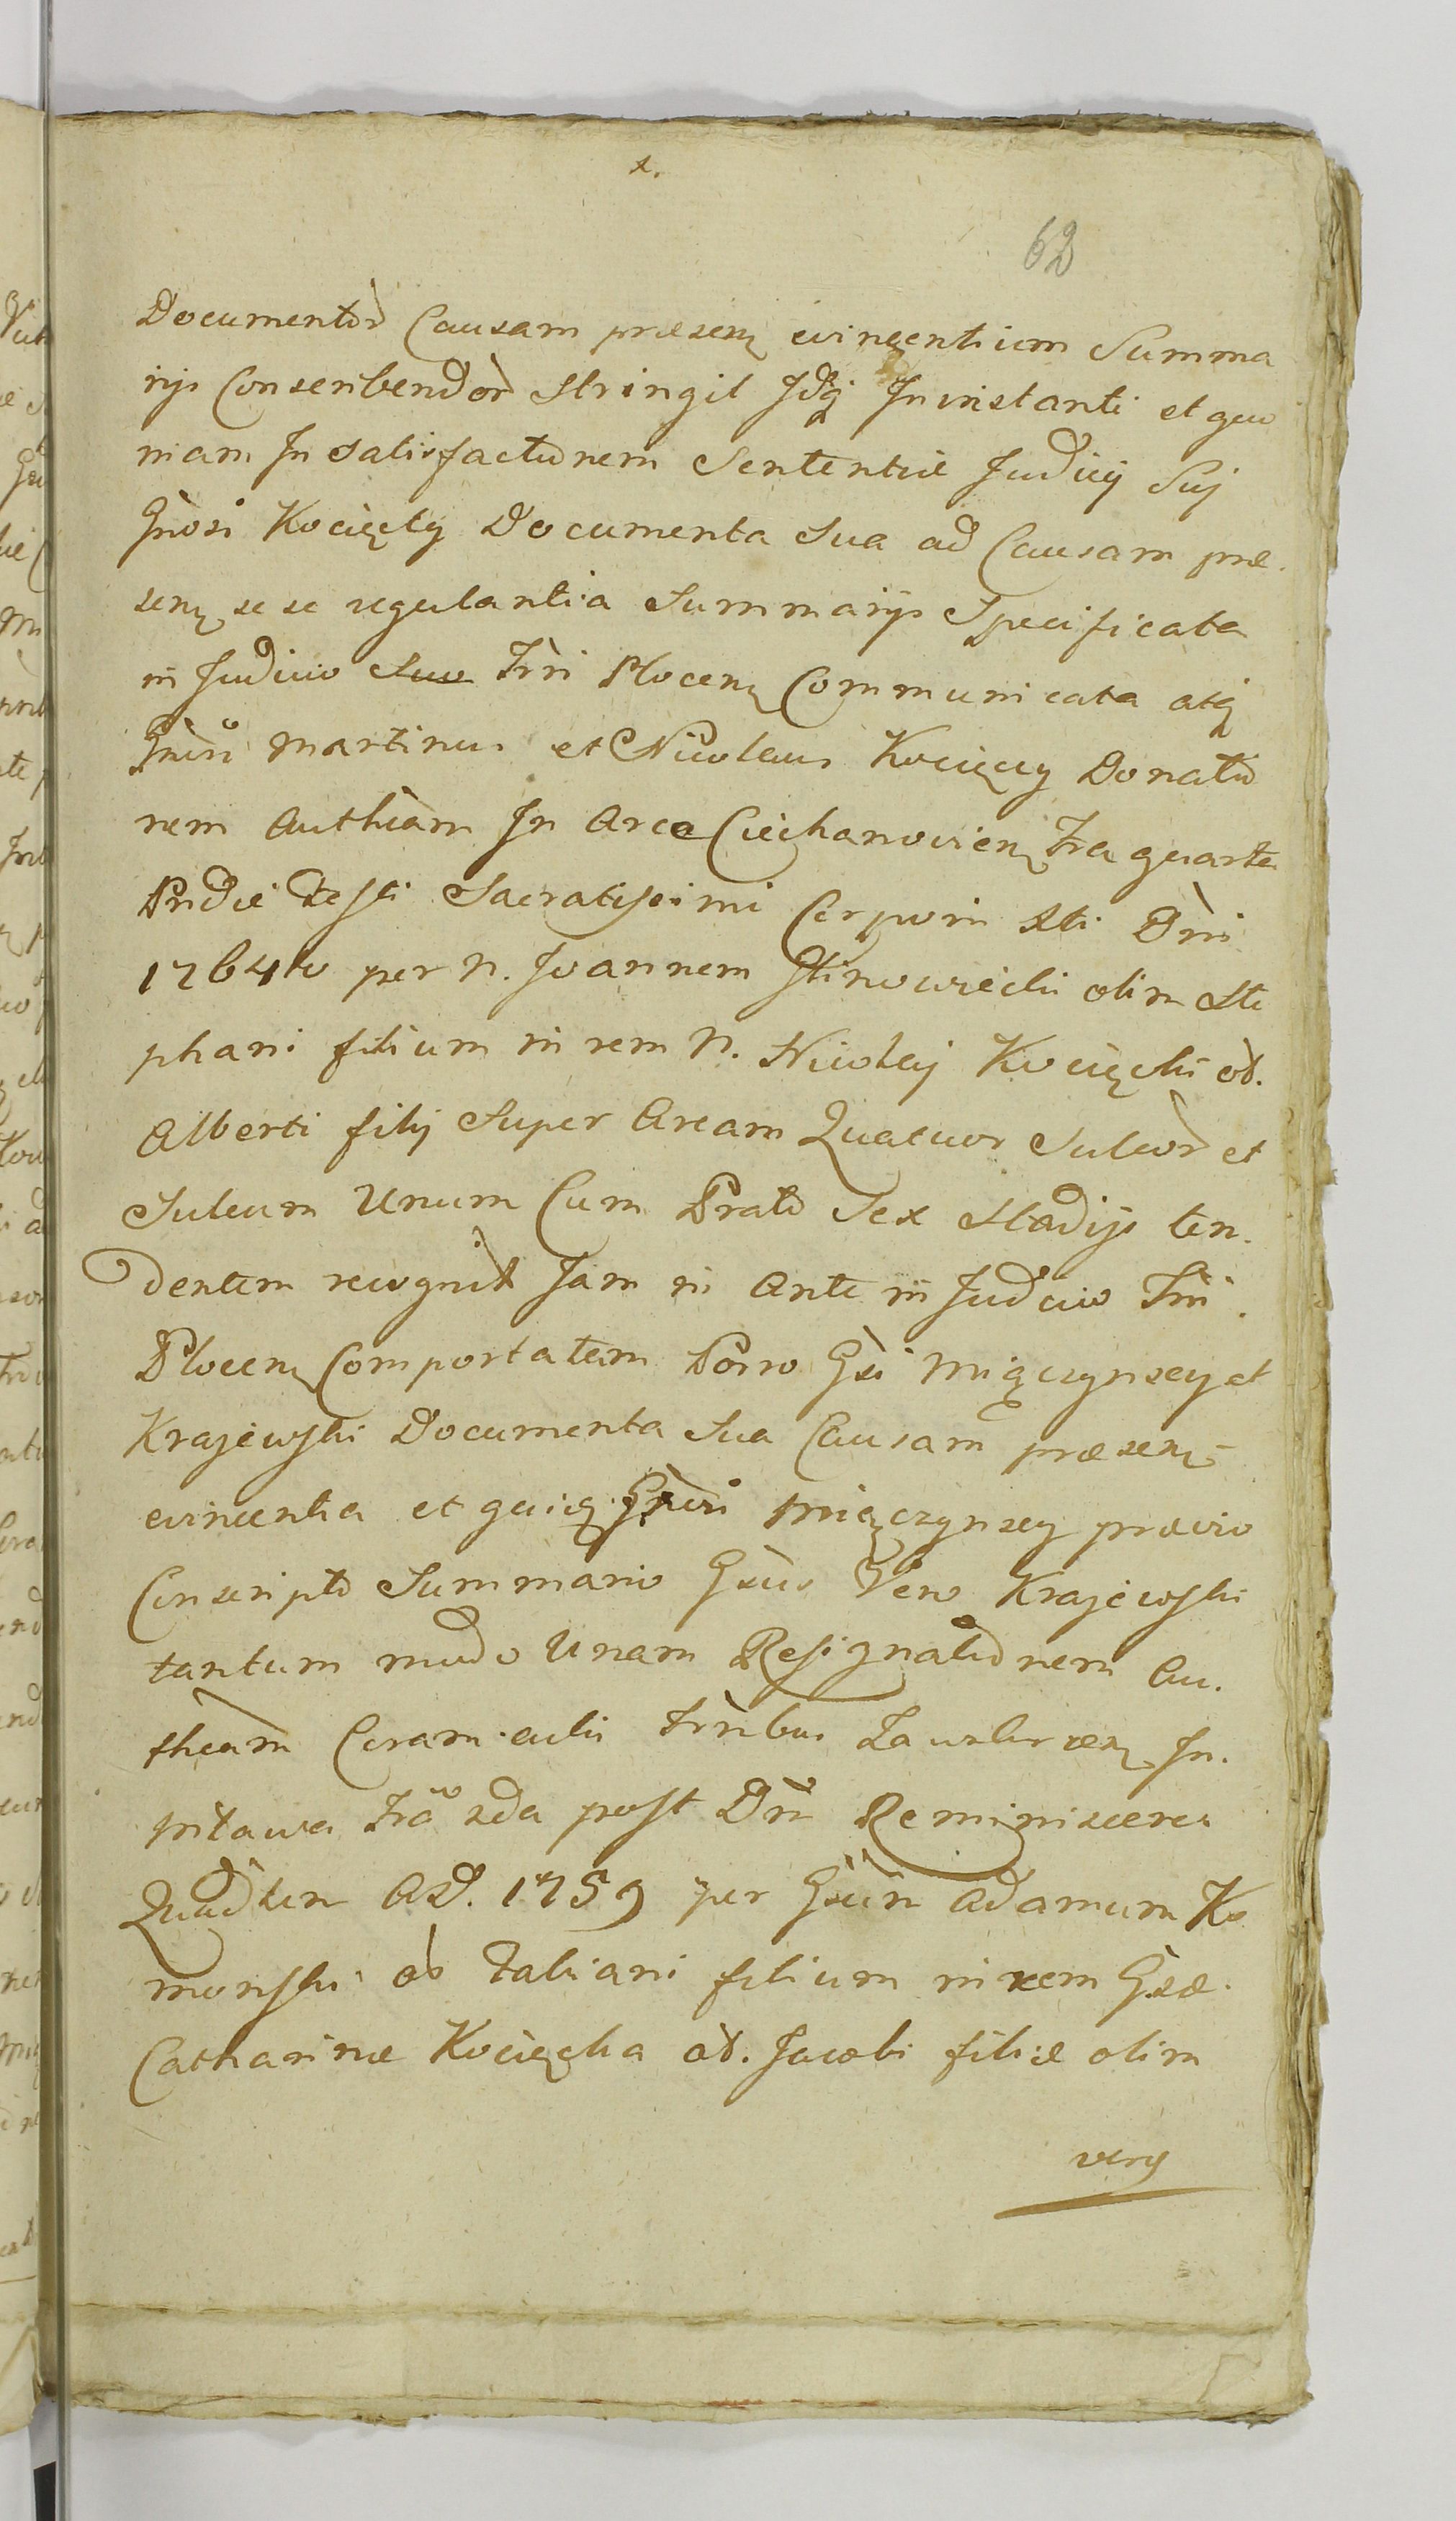 x.
62
Documentor Causam præsen evincentium Summa
rijs Conscribendor Stringit Jdq Ininstanti et quo
niam In satisfactionem Sententiæ Judicij Suj
Gnosi Kocięcky Documenta Sua ad Causam præ.
sen se se regulantia Summarijs Specificata
in Judicio Suo Trri Plocen Communicata atq
Martinus et Nicolaus Kocięccy Donatio
nem Authcam In Arce Ciechanovien Fra quarta
Pridie Festi Sacratissimi Corporis Xti Dni
1764to per N. Joannem olim Ste
phani filium in rem N. Nicolaj Kocięcki od.
Alberti filij Super Aream Quatuor Sulcor et
Sulcum Unum Cum Prato Sex Stadijs ten.
dentem recognit Jam in Ante in Judicio Trri.
Plocen Comportatam Porro Gsi Miączynscy et
Krajewski Documenta Sua Causam præsen
evincentia et quid. Miączynscy prævio
Conscripto Summario Gsus Vero Krajewski
tantum modo Unam Resignationem Au.
thcam Coram actis Trribus Zawskrzen In.
Mława Fra 2da post Dm Reminiscere
Quadlem A.D. 1759 per Gsum Adamum Ko
morski od Fabiani filium in rem Gsæ.
Catharinæ Kocięcka od. Jacobi filiæ olim
very